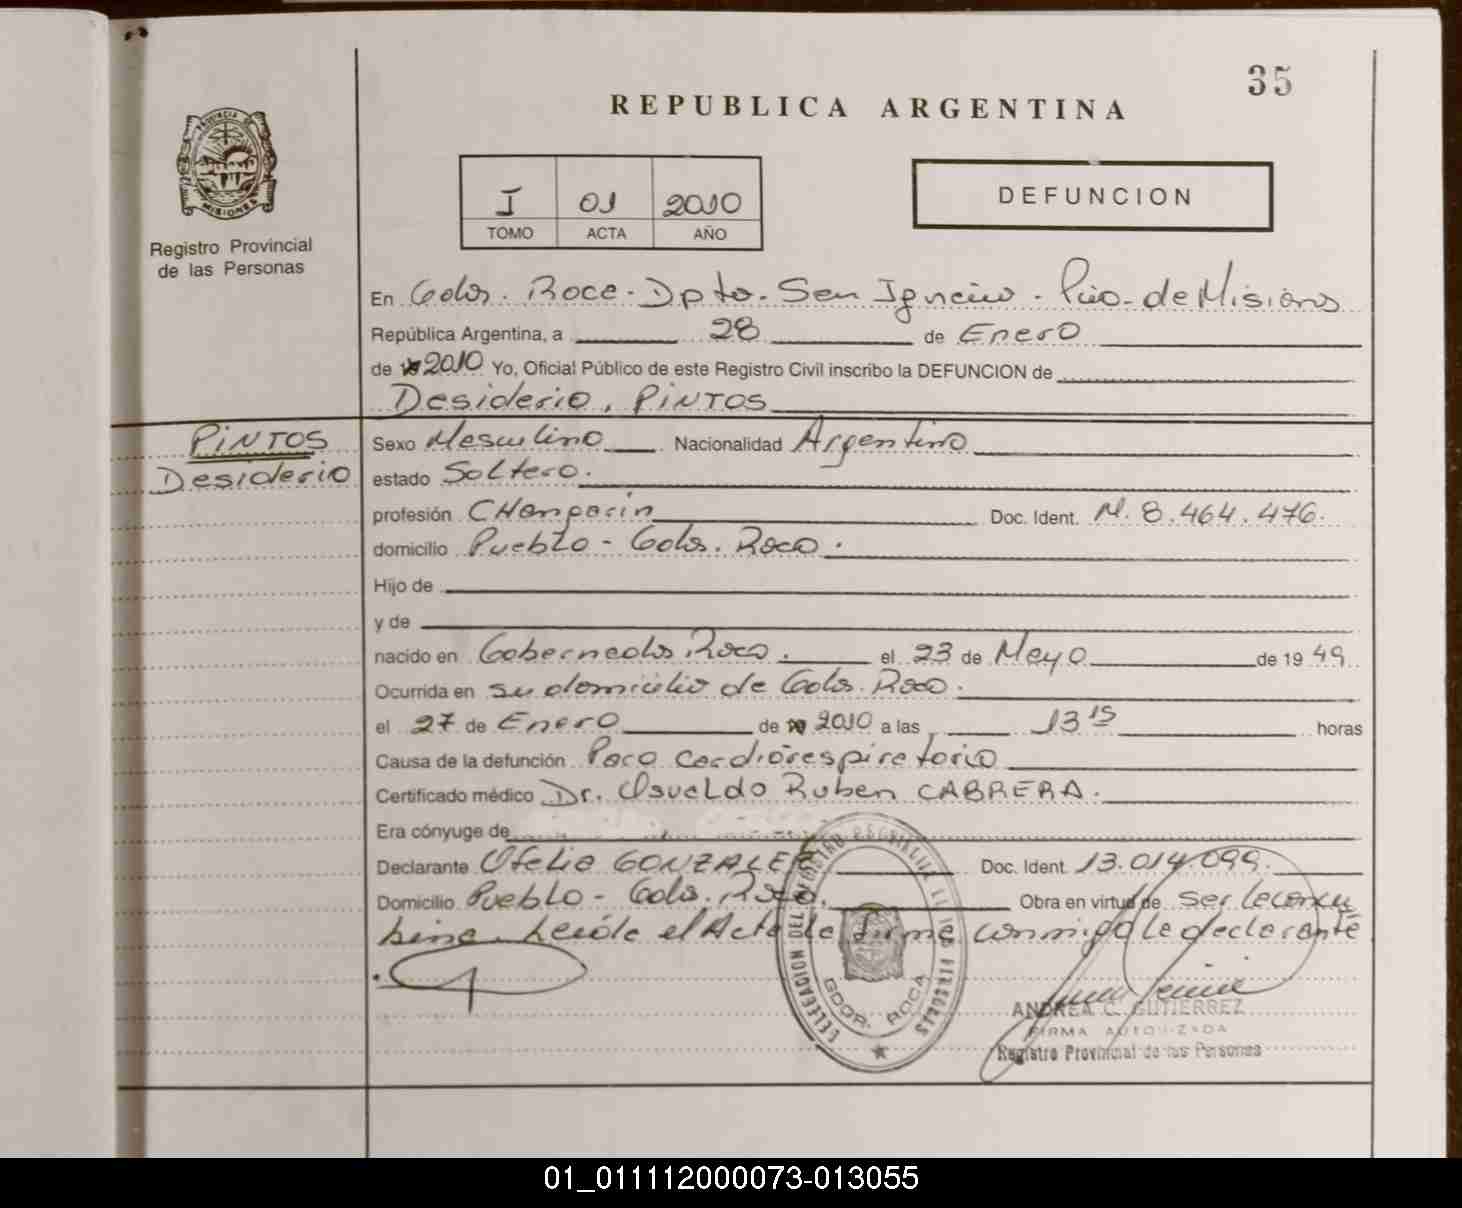 35
REPUBLICA ARGENTINA
PROVINCIA DE
MISIONES
Registro Provincial
de las Personas
I 01 2010
TOMO ACTA AÑO
DEFUNCION
En Gdor. Roca - Dpto. San Ignacio - Pcia. de Misiones
República Argentina, a 28 de Enero
de 2010 Yo, Oficial Público de este Registro Civil inscribo la DEFUNCION de
Desiderio, PINTOS
PINTOS
Desiderio
Sexo Masculino Nacionalidad Argentino
estado Soltero.
profesión CHangarin Doc. Ident. M. 8.464.476.
domicilio Pueblo - Gdor. Roca.
Hijo de
y de
nacido en Gobernador Roca. el 23 de Mayo de 19 49
Ocurrida en su domicilio de Gdor. Roca.
el 27 de Enero de 2010 a las 13 15 horas
Causa de la defunción Paro cardiorespiratorio
Certificado médico Dr. Osvaldo Ruben CABRERA.
Era cónyuge de
Declarante Ofelia GONZALEZ Doc. Ident. 13.014.099.
Domicilio Pueblo - Gdor. Roca. Obra en virtud de ser la concu
bina. Leida el Acta la firma conmigo la declarante
.
DELEGACION DEL REGISTRO PROVINCIAL DE LAS PERSONAS
GDOR. ROCA
ANDREA C. GUTIERREZ
FIRMA AUTORIZADA
Registro Provincial de las Personas
01_011112000073-013055